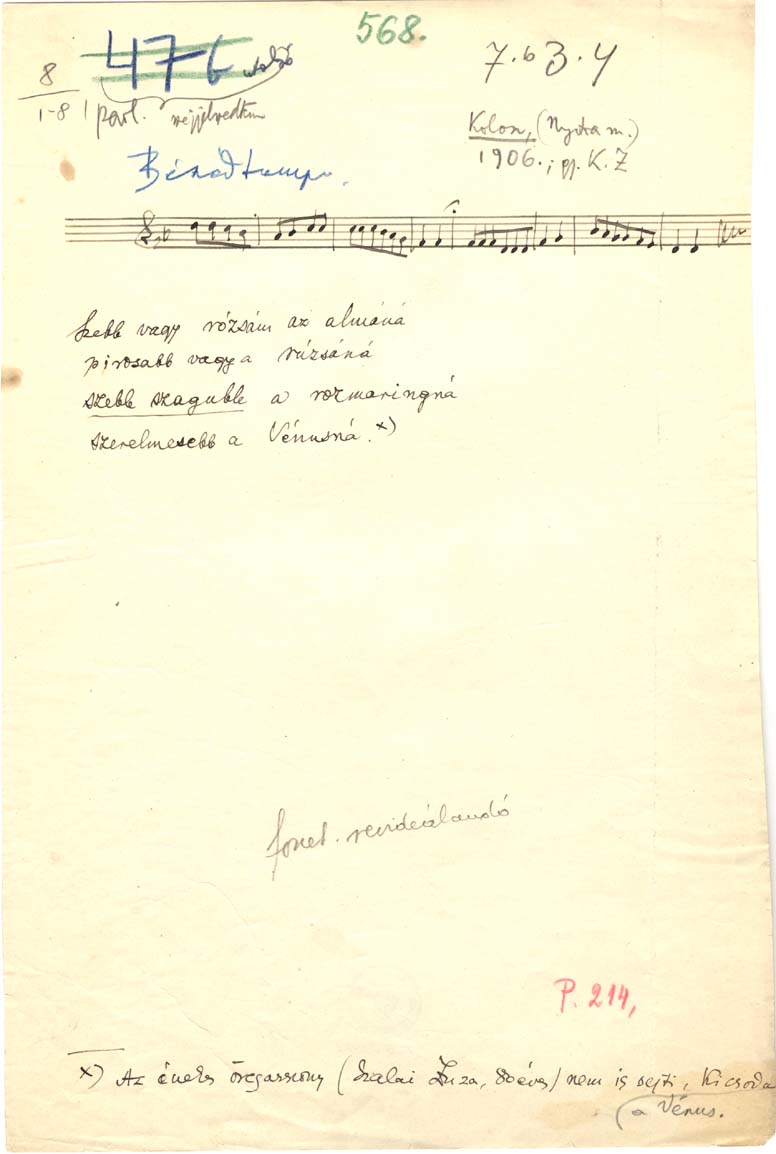 568.
8
1-8
476 utolsó
pavl.
7.b3.4
Kolon, (Nyitra m.)
1906.; gy. K. Z
Szebb vagy rózsám az almáná
pirosabb vagy a rúzsáná
szebb szagubb a rozmaringná
szerelmesebb a Vénusná. x)
fonet. revideálandó
P. 214,
x) Az énekes öregasszony (Szalai Zuza, éves) nem is sejti, kicsoda
a Vénus.